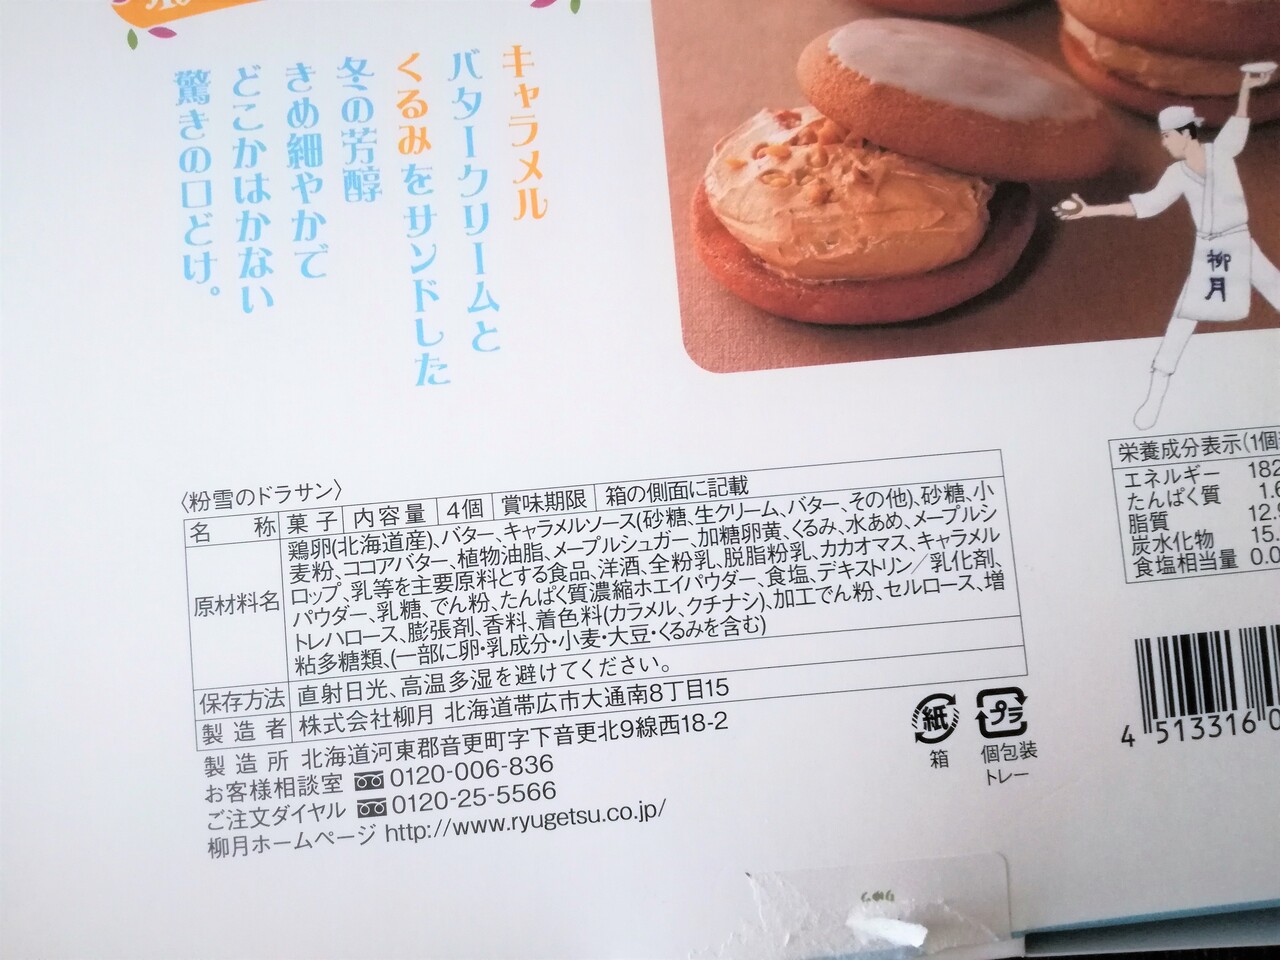 キャラメル
バタークリームと
くるみをサンドした
冬の芳醇
きめ細やかで
どこかはかない
驚きの口どけ。
柳月
〈粉雪のドラサン〉
名称 菓子 内容量 4個 賞味期限 箱の側面に記載
原材料名 鶏卵(北海道産)、バター、キャラメルソース(砂糖、生クリーム、バター、その他)、砂糖、小
麦粉、ココアバター、植物油脂、メープルシュガー、加糖卵黄、くるみ、水あめ、メープルシ
ロップ、乳等を主要原料とする食品、洋酒、全粉乳、脱脂粉乳、カカオマス、キャラメル
パウダー、乳糖、でん粉、たんぱく質濃縮ホエイパウダー、食塩、デキストリン／乳化剤、
トレハロース、膨張剤、香料、着色料(カラメル、クチナシ)、加工でん粉、セルロース、増
粘多糖類、(一部に卵・乳成分・小麦・大豆・くるみを含む)
保存方法 直射日光、高温多湿を避けてください。
製造者 株式会社柳月 北海道帯広市大通南8丁目15
製造所 北海道河東郡音更町字下音更北9線西18-2
お客様相談室 0120-006-836
ご注文ダイヤル 0120-25-5566
柳月ホームページ http://www.ryugetsu.co.jp/
紙
箱
プラ
個包装
トレー
栄養成分表示(1個
エネルギー 182
たんぱく質 1.6
脂質 12.
炭水化物 15.
食塩相当量 0.0
4 513316 0